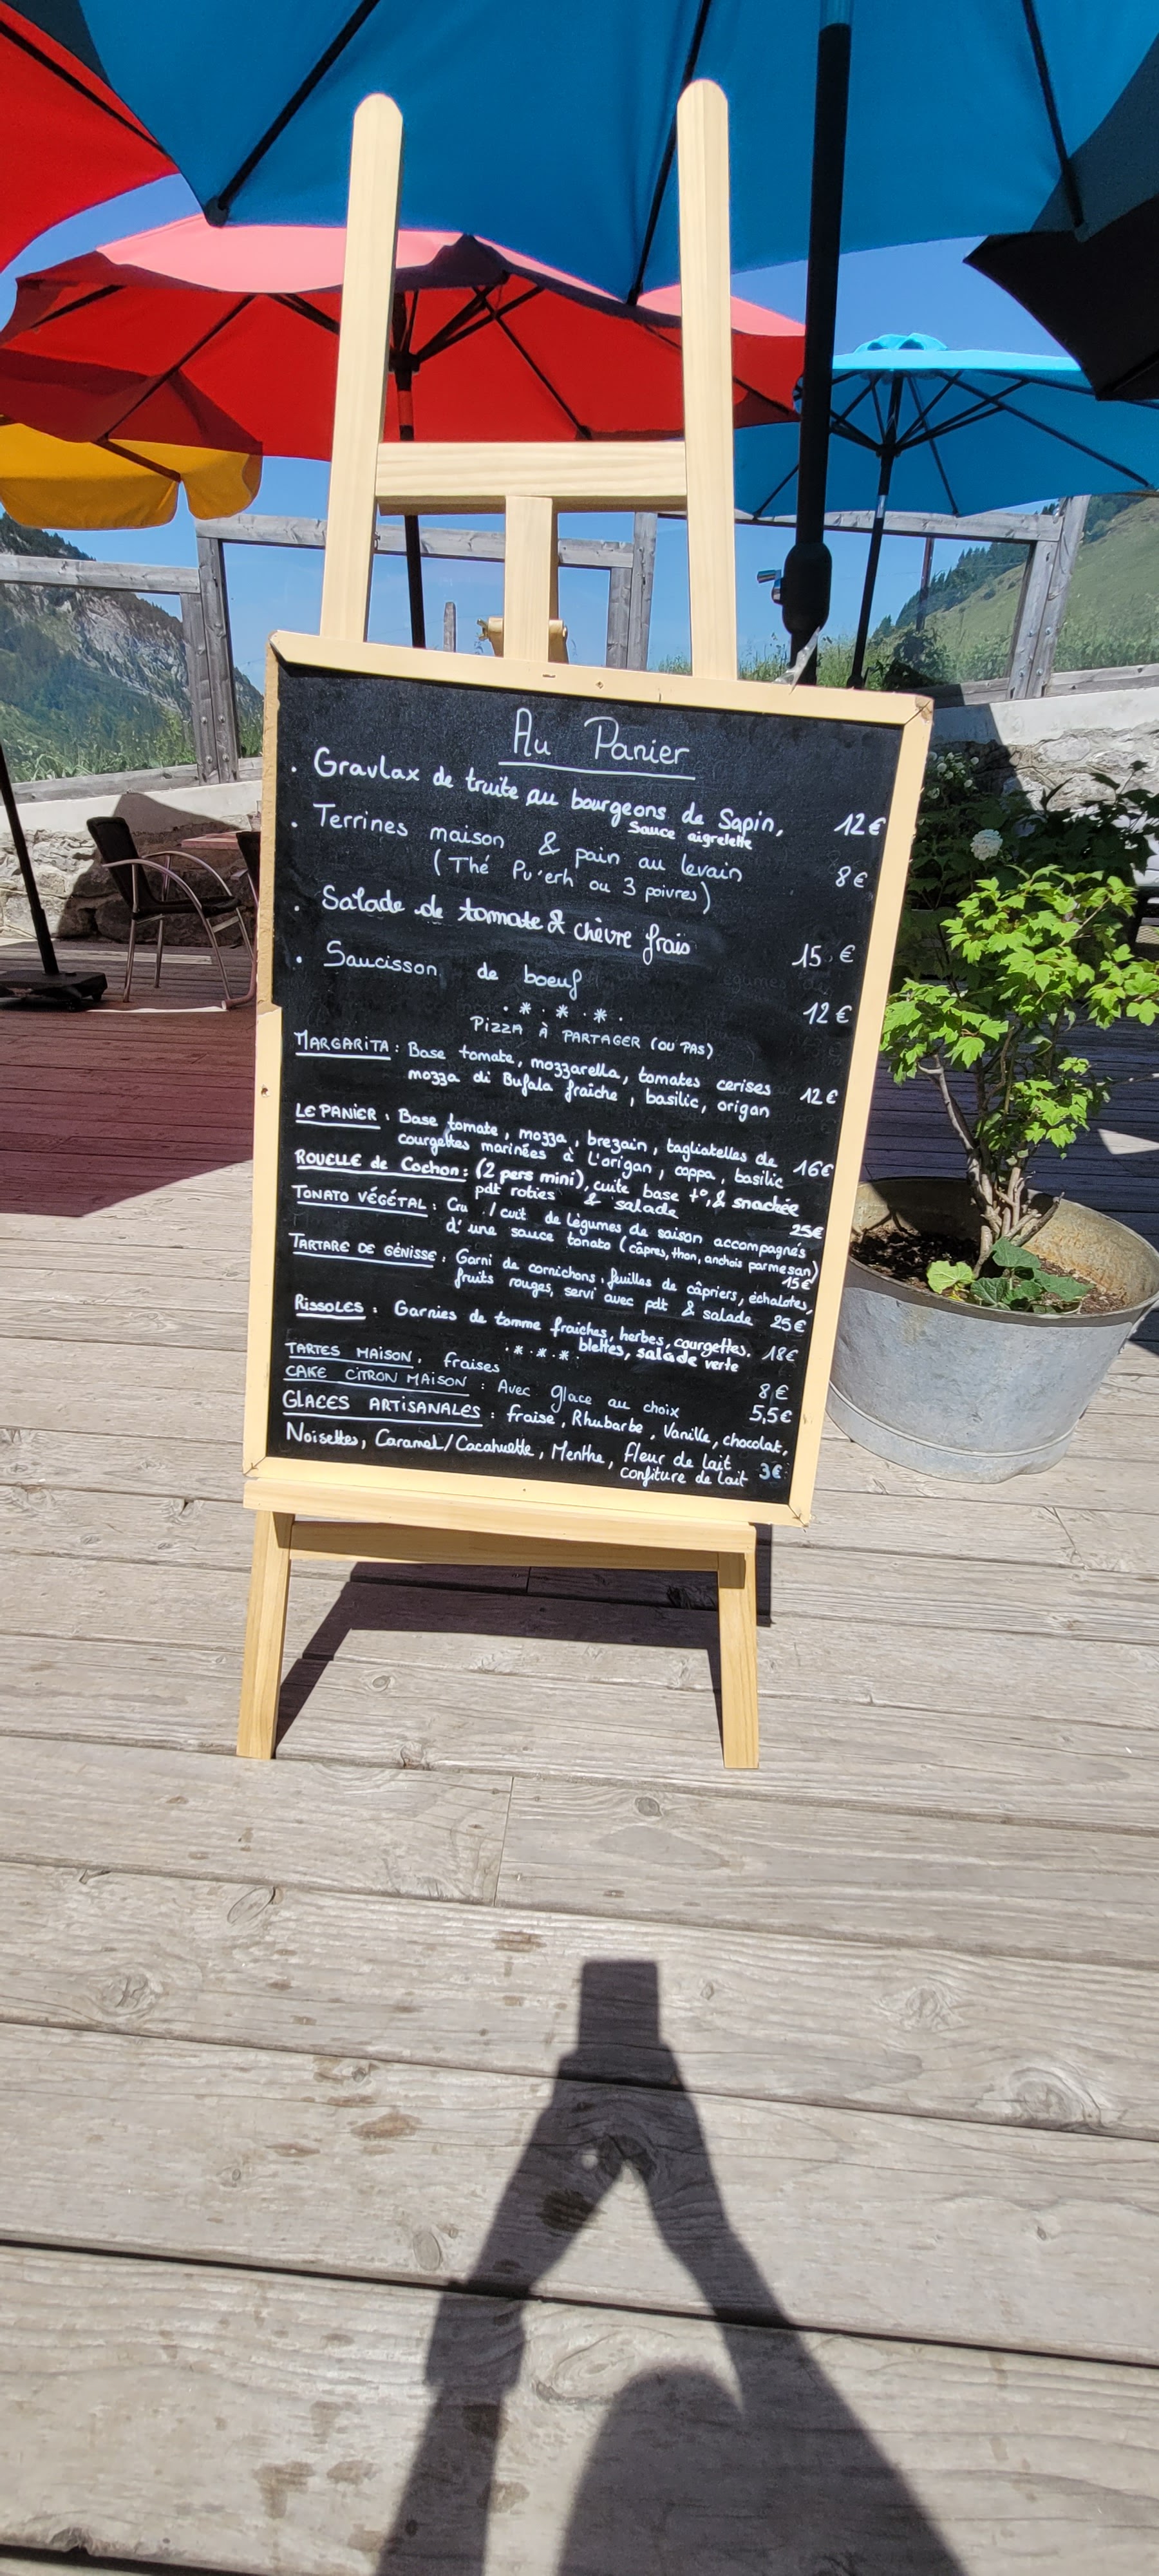 Au Panier
. Gravlax de truite au bourgeons de Sapin, 12€
Sauce aigrelette
. Terrines maison & pain au levain 8€
(Thé Pu'erh ou 3 poivres)
. Salade de tomate & chèvre frais 15 €
. Saucisson de boeuf 12€
. * . * . * .
PIZZA À PARTAGER (OU PAS)
MARGARITA : Base tomate, mozzarella, tomates cerises
mozza di Bufala fraîche, basilic, origan 12€
LE PANIER : Base tomate, mozza, brezain, tagliatelles de
courgettes marinées à l'origan, coppa, basilic 16€
ROUELLE de Cochon : (2 pers mini), cuite base t°, & snackée
pdt roties & salade 25€
TONATO VÉGÉTAL : Cru / cuit de légumes de saison accompagnés
d'une sauce tonato (câpres, thon, anchois parmesan)
15€
TARTARE DE GÉNISSE : Garni de cornichons, feuilles de câpriers, échalotes,
fruits rouges, servi avec pdt & salade 25€
RISSOLES : Garnies de tomme fraiches, herbes, courgettes. 18€
blettes, salade verte
. * . * . *
TARTES MAISON, fraises 8€
CAKE CITRON MAISON : Avec glace au choix 5,5€
GLACES ARTISANALES : fraise, Rhubarbe, Vanille, chocolat,
Noisettes, Caramel/Cacahuette, Menthe, fleur de lait 3€
confiture de lait